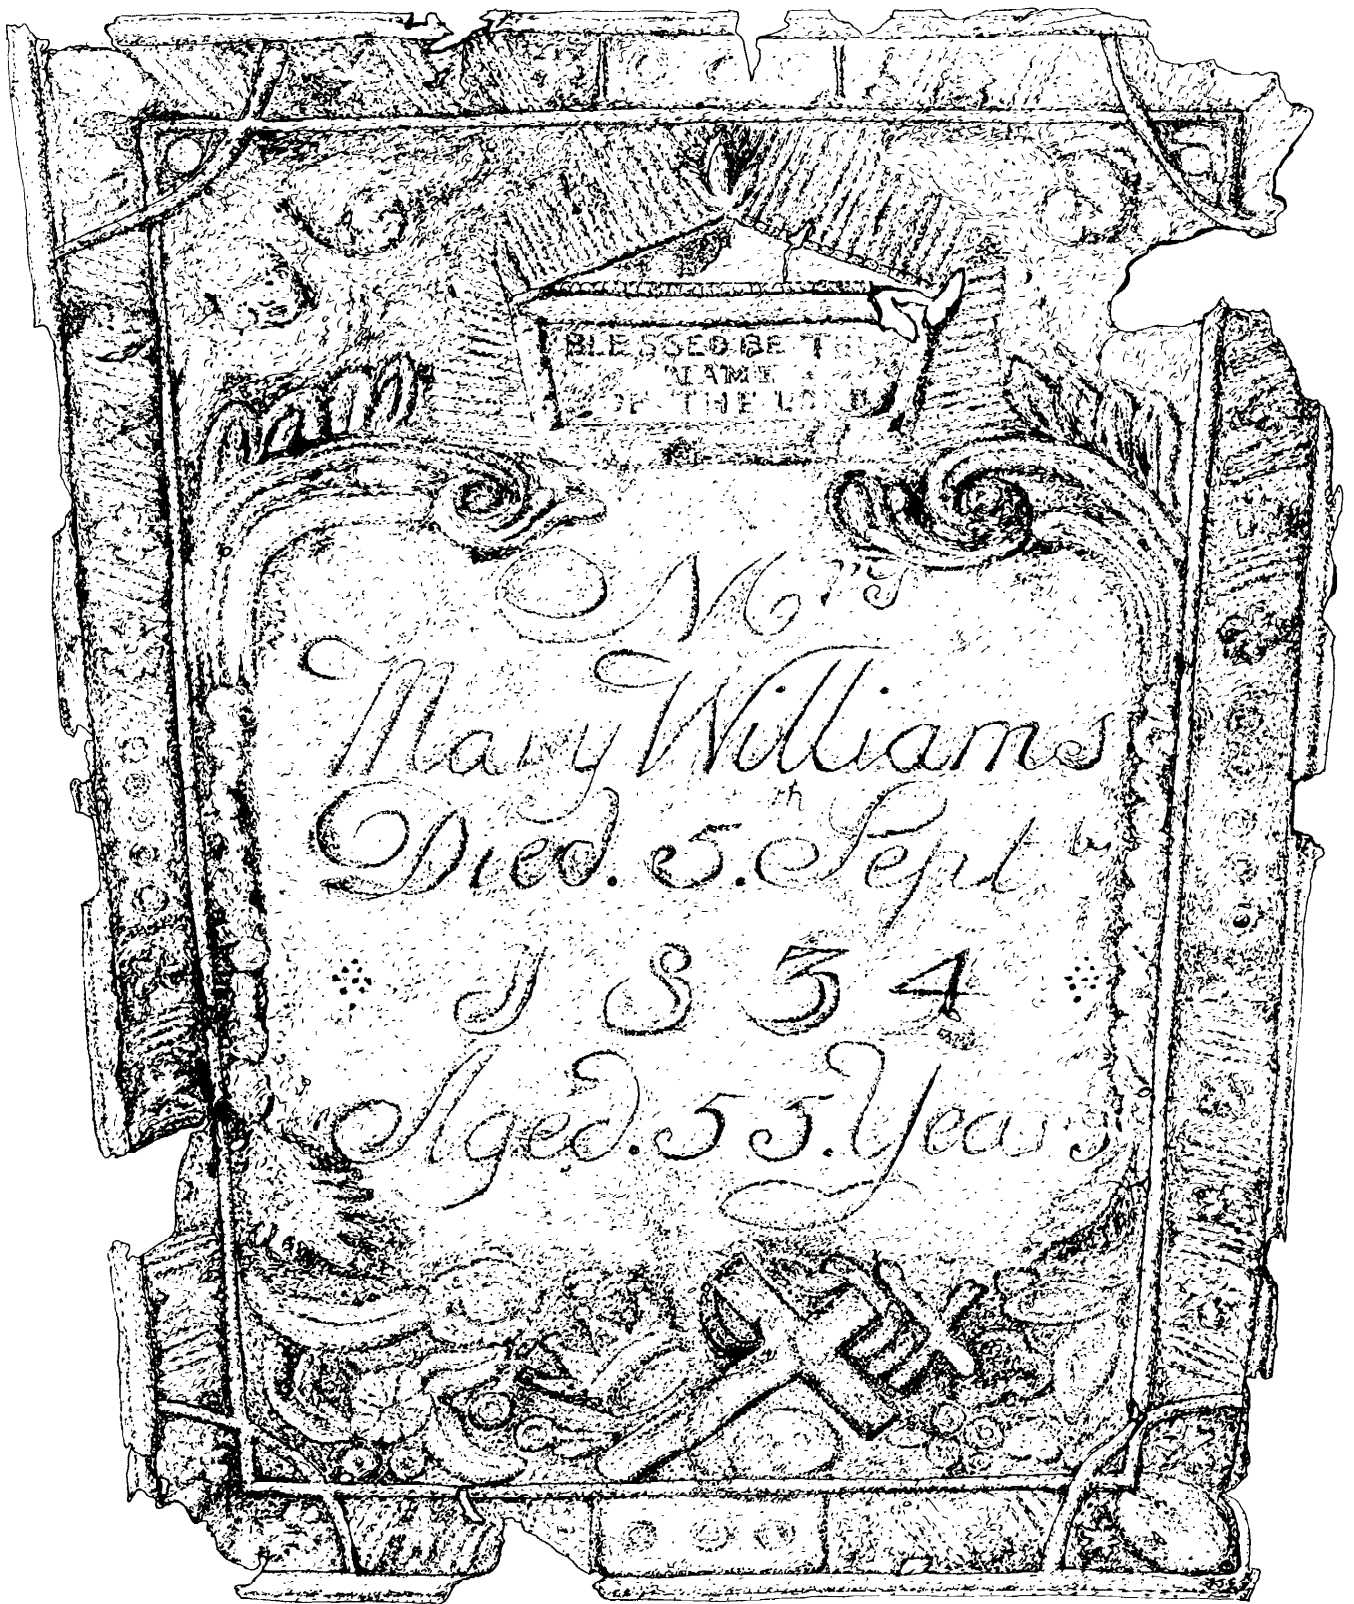 BLESSED BE THE
NAME
OF THE LORD
Mrs
Mary Williams
Died. 5th. Septbr
1834
Aged. 55. Years